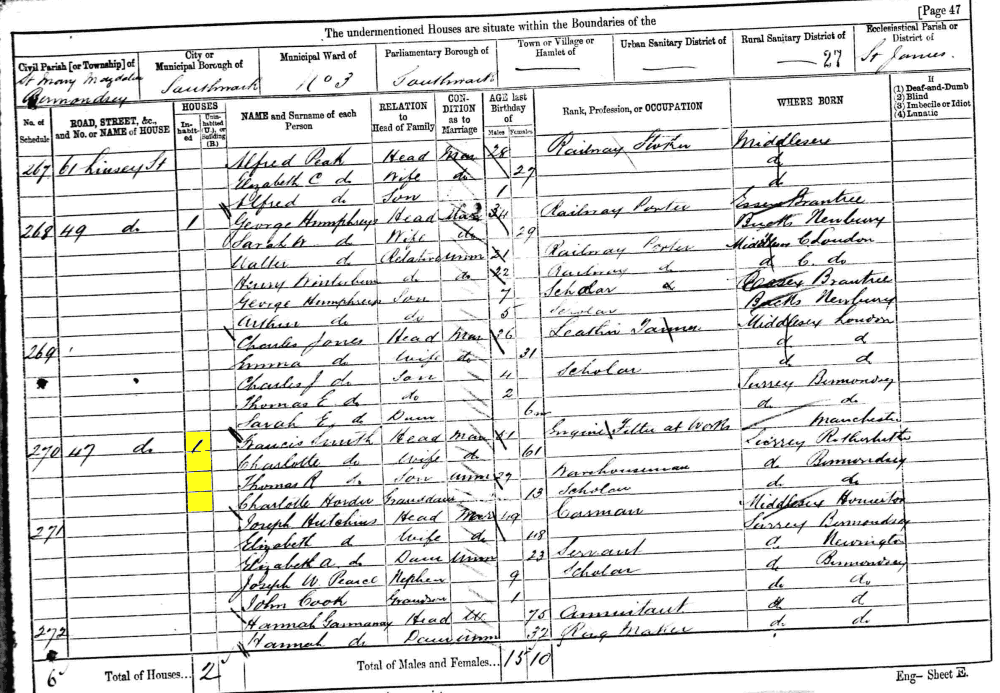 [Page 47
The undermentioned Houses are situate within the Boundaries of the
Civil Parish [or Township] of City or Municipal Borough of Municipal Ward of Parliamentary Borough of Town or Village or Hamlet of Urban Sanitary District of Rural Sanitary District of Ecclesiastical Parish or District of
St Mary Magdalen Bermondsey Southwark No 3 Southwark 27 St James
No. of Schedule ROAD, STREET, &c., and No. or NAME of HOUSE HOUSES Inhabited Uninhabited (U.), or Building (B.) NAME and Surname of each Person RELATION to Head of Family CONDITION as to Marriage AGE last Birthday of Males Females Rank, Profession, or OCCUPATION WHERE BORN If (1) Deaf-and-Dumb (2) Blind (3) Imbecile or Idiot (4) Lunatic
267 61 Linsey St Alfred Peak Head Mar 28 Railway Stoker Middlesex
Elizabeth C do Wife do 27 do
Alfred do Son 1 do
268 49 do 1 George Humphreys Head Mar 34 Railway Porter Essex Brantree
Sarah A do Wife do 29 Bucks Newbury
Walter do Relative unm 21 Railway Porter Middlesex C London
Henry do do 22 Railway do d C. do
George Humphreys Son 7 Scholar Essex Brantree
Arthur do do 5 Scholar Bucks Newbury
269 Charles Jones Head Mar 26 Leather Tanner Middlesex London
Emma do Wife do 31 d d
Charles J do Son 4 Scholar d d
Thomas E do do 2 Surrey Bermondsey
Sarah E do Daur 6m do do
270 47 do 1 Francis Smith Head Mar 61 Engine Fitter at Works Manchester
Charlotte do Wife do 61 Surrey Rotherhithe
Thomas R do Son unm 27 Warehouseman d Bermondsey
Charlotte Hordir Grandaur 13 Scholar d do
271 Joseph Hutchins Head Mar 49 Carman Middlesex Homerton
Elizabeth d Wife do 48 Surrey Bermondsey
Elizabeth A. do Daur unm 23 Servant d Newington
Joseph W Pearce Nephew 9 Scholar d Bermondsey
John Cook Grandson 1 do do
272 Hannah Head W 75 Annuitant d d
Hannah do Daur unm 32 Maker do do
6 Total of Houses... 2 Total of Males and Females... 15 10 Eng- Sheet E.